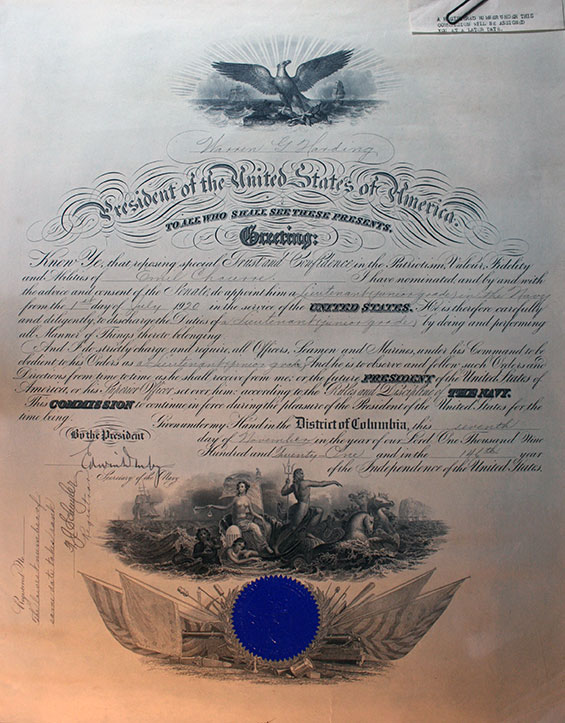 A REGISTERED NUMBER UNDER THIS
COMMISSION WILL BE ASSIGNED
YOU AT A LATER DATE.
Warren G Harding
President of the United States of America.
TO ALL WHO SHALL SEE THESE PRESENTS,
Greeting:
Know Ye, that reposing special Trust and Confidence in the Patriotism, Valour, Fidelity
and Abilities of I have nominated and by and with
the advice and consent of the Senate do appoint him a Lieutenant (junior grade) in the Navy
from the 1st day of July 1920 in the service of the UNITED STATES. He is therefore carefully
and diligently to discharge the Duties of a Lieutenant (junior grade) by doing and performing
all Manner of Things thereto belonging.
And I do strictly charge and require all Officers, Seamen and Marines, under his Command to be
obedient to his Orders as a Lieutenant (junior grade) And he is to observe and follow such Orders and
Directions from time to time as he shall receive from me, or the future PRESIDENT of the United States of
America, or his Superior Officer set over him, according to the Rules and Discipline of THE NAVY.
This COMMISSION to continue in force during the pleasure of the President of the United States for the
time being.
Given under my Hand in the District of Columbia, this seventh
day of November in the year of our Lord One Thousand Nine
Hundred and Twenty One and in the 146th year
of the Independence of the United States.
By the President
Edwin Denby
Secretary of the Navy